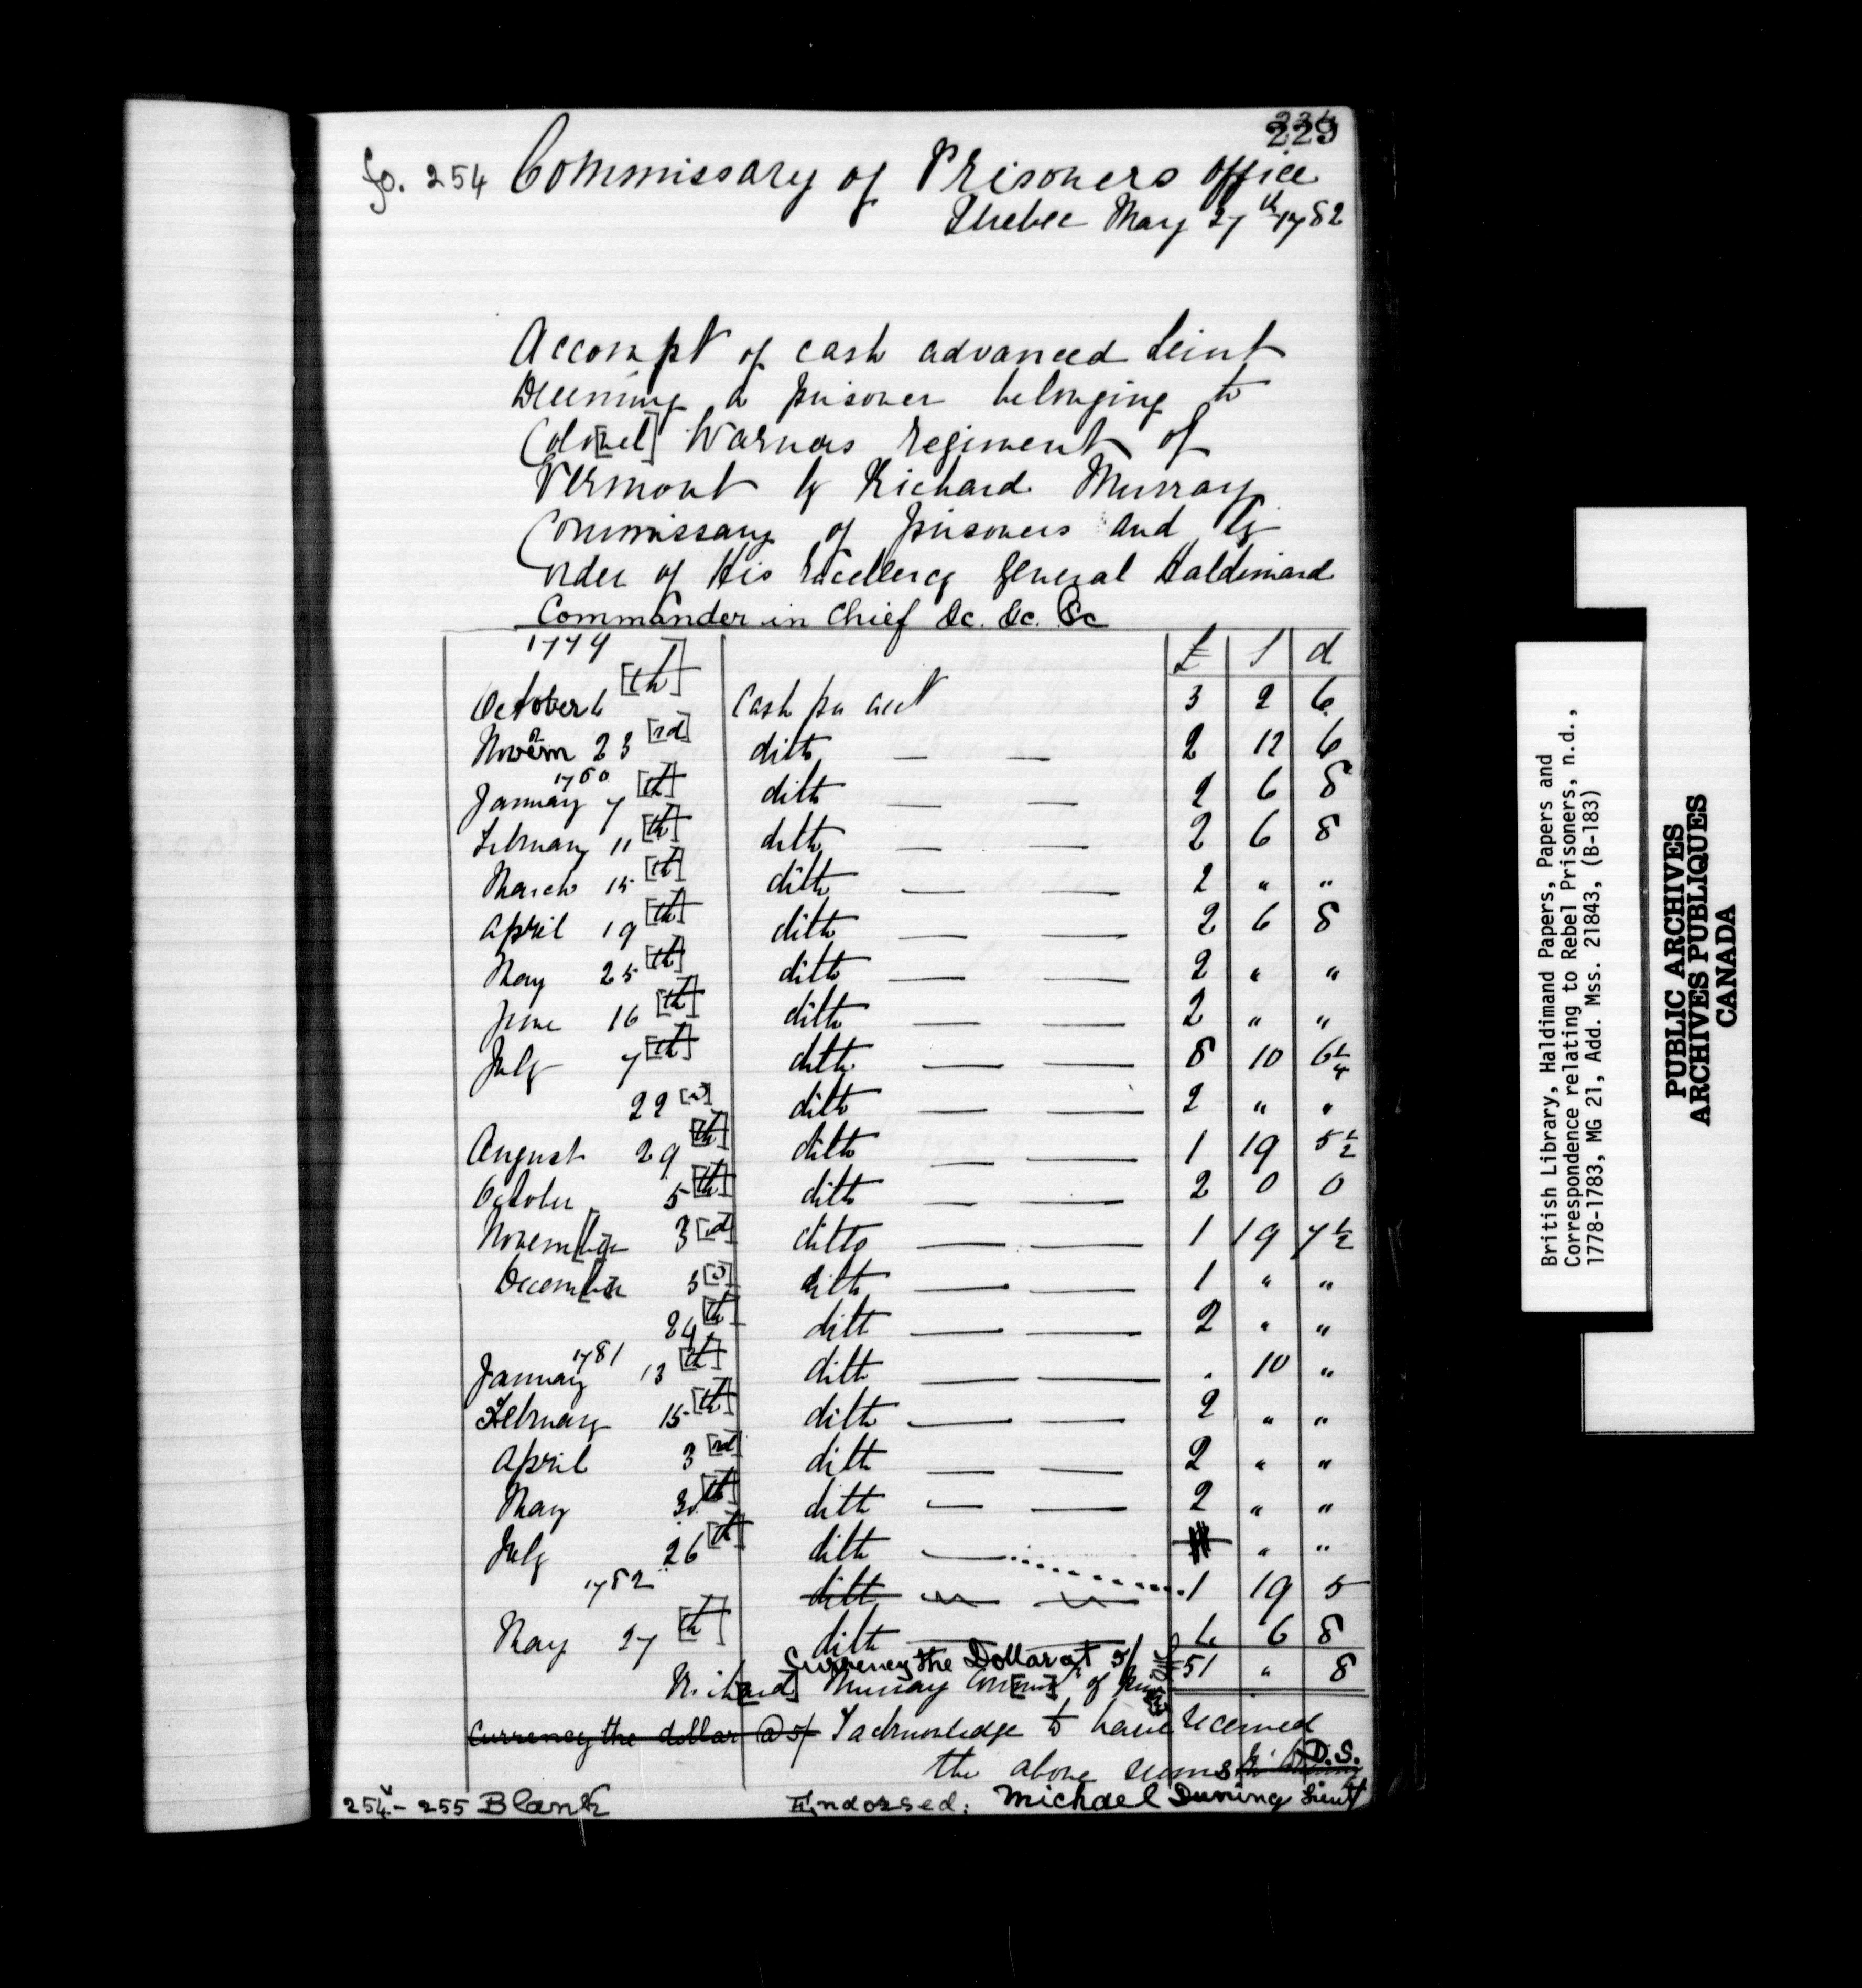 229
fo. 254 Commissary of Prisoners office
Quebec May 27th 1782
Accompt of cash advanced Leiut
Deening a prisoner belonging to
Colo[nel] Warners regiment of
Vermont by Richard Murray
Commissary of prisoners and by
order of His Excellency General Haldimand
Commander in Chief &c. &c. &c
1779 £ s d
October 6 [th] Cash per acct 3 2 6
Novem 23 [rd] ditto 2 12 6
1780
January 7 [th] ditto 2 6 8
February 11 [th] ditto 2 6 8
March 15 [th] ditto 2 " "
April 19 [th] ditto 2 6 8
May 25 [th] ditto 2 " "
June 16 [th] ditto 2 " "
July 7 [th] ditto 8 10 6 1/4
22 ditto 2 " "
August 29 [th] ditto 1 19 5 1/2
October 5 [th] ditto 2 0 0
Novem[be]r 3 [rd] ditto 1 19 7 1/2
Decem[be]r ditto 1 " "
24 [th] ditto 2 " "
1781
January 13 [th] ditto . 10 "
February 15 [th] ditto 2 " "
April 3 [rd] ditto 2 " "
May 30 th ditto 2 " "
July 26 [th] ditto " "
1782 ditto 1 19 5
May 27 [th] ditto 6 8
Currency the Dollar at 5/ 51 " 8
Rich[ard] Murray of
Currency the dollar @ 5/ I acknowledge to have received
the above sums D.S.
254v - 255 Blank Endorsed: Michael Duning Lieut
British Library, Haldimand Papers, Papers and
Correspondence relating to Rebel Prisoners, n.d.,
1778-1783, MG 21, Add. Mss. 21843, (B-183)
PUBLIC ARCHIVES
ARCHIVES PUBLIQUES
CANADA